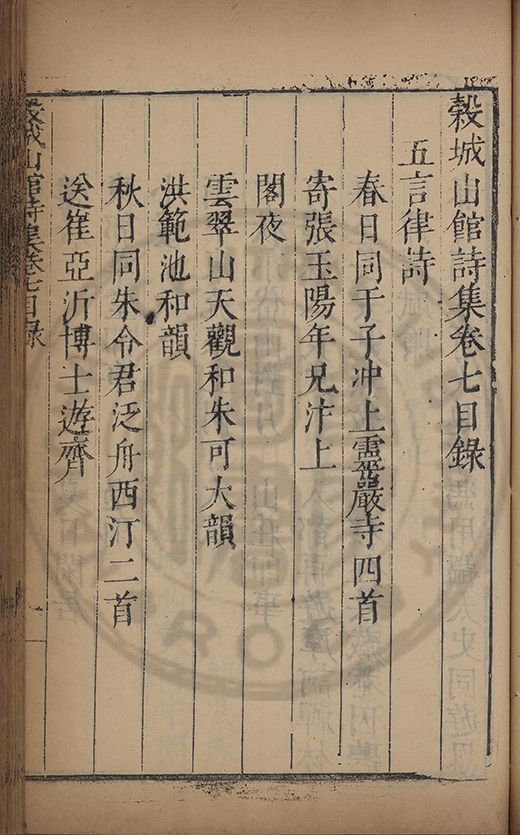 穀城山館詩集卷七目錄
五言律詩
春日同于子冲上靈巖寺四首
寄張玉陽年兄汴上
閣夜
雲翠山天觀和朱可大韻
洪範池和韻
秋日同朱令君泛舟西汀二首
送崔亞沂博士遊齊
穀城山館詩集卷七目錄